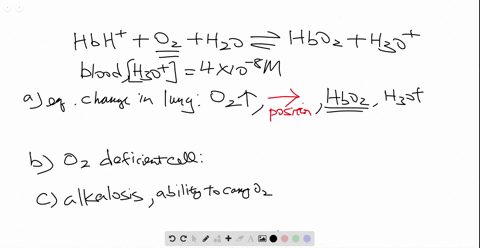 HbH⁺ + O₂ + H₂O ⇌ HbO₂ + H₃O⁺
blood [H₃O⁺] = 4 × 10⁻⁸ M
a) eq. change in lung: O₂ ↑, → position, HbO₂, H₃O↑
b) O₂ deficient cell:
c) alkalosis, ability to carry O₂